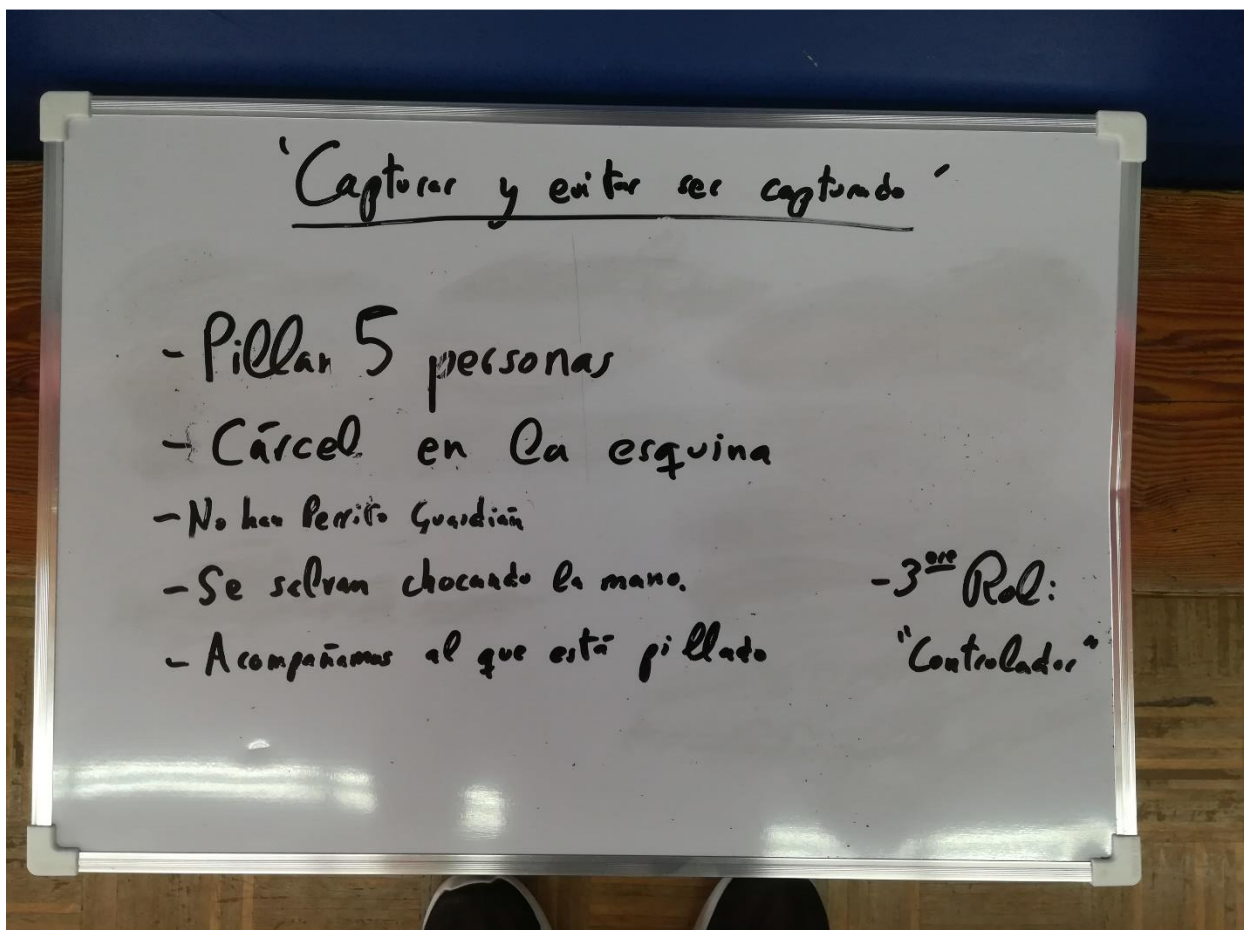 'Capturar y evitar ser capturado'
- Pillar 5 personas
- Cárcel en la esquina
- No hay Perrito Guardián
- Se salvan chocando la mano.
- Acompañamos al que está pillado
- 3ere Rol:
"Controlador"